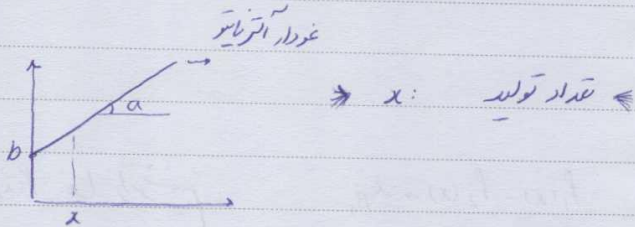 نمودار آلترناتیو
a
b
x
x : تعداد تولید